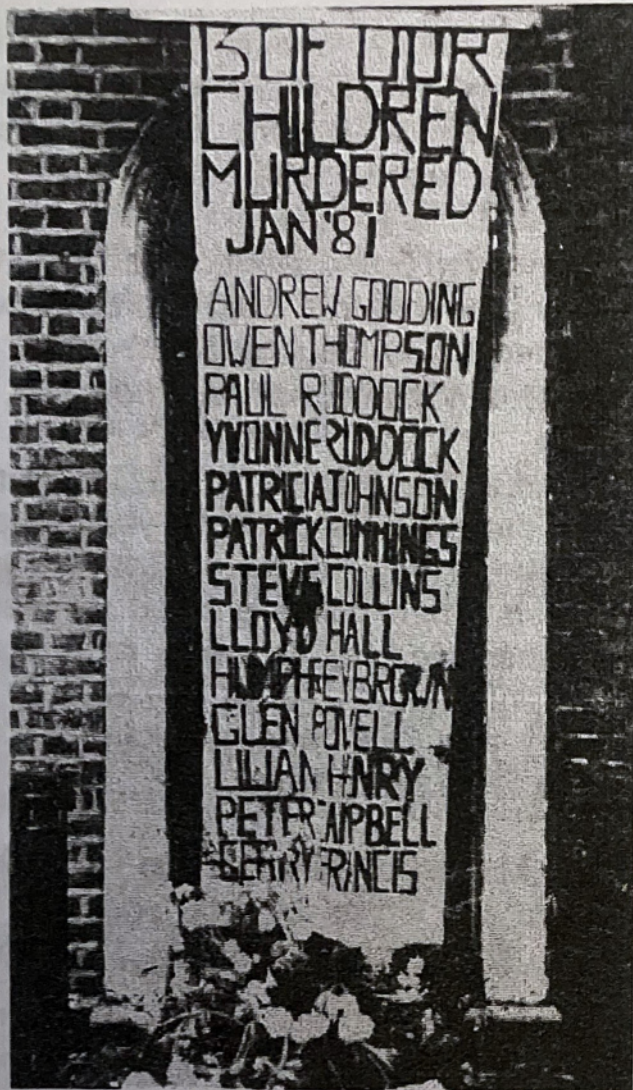 13 OF OUR
CHILDREN
MURDERED
JAN '81
ANDREW GOODING
OWEN THOMPSON
PAUL RUDDOCK
YVONNE RUDDOCK
PATRICIA JOHNSON
PATRICK CUMMINGS
STEVE COLLINS
LLOYD HALL
HUMPHREY BROWN
GLEN POWELL
LILIAN HNRY
PETER CAMPBELL
GERRY FRANCIS